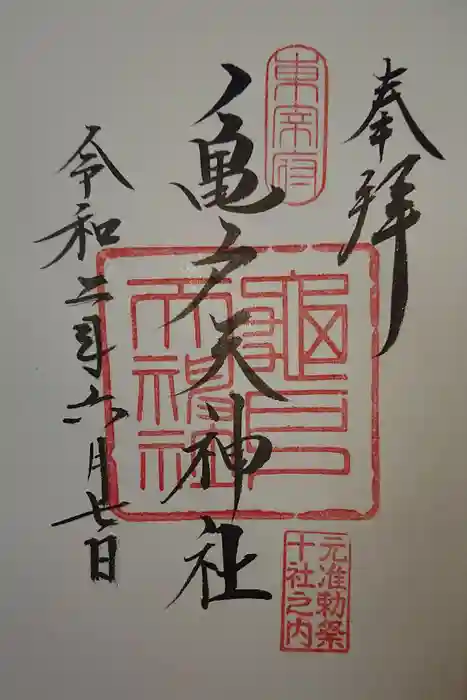 奉拝
東宰府
亀戸天神社
龜戸
天神社
元准勅祭
十社之内
令和二年六月七日